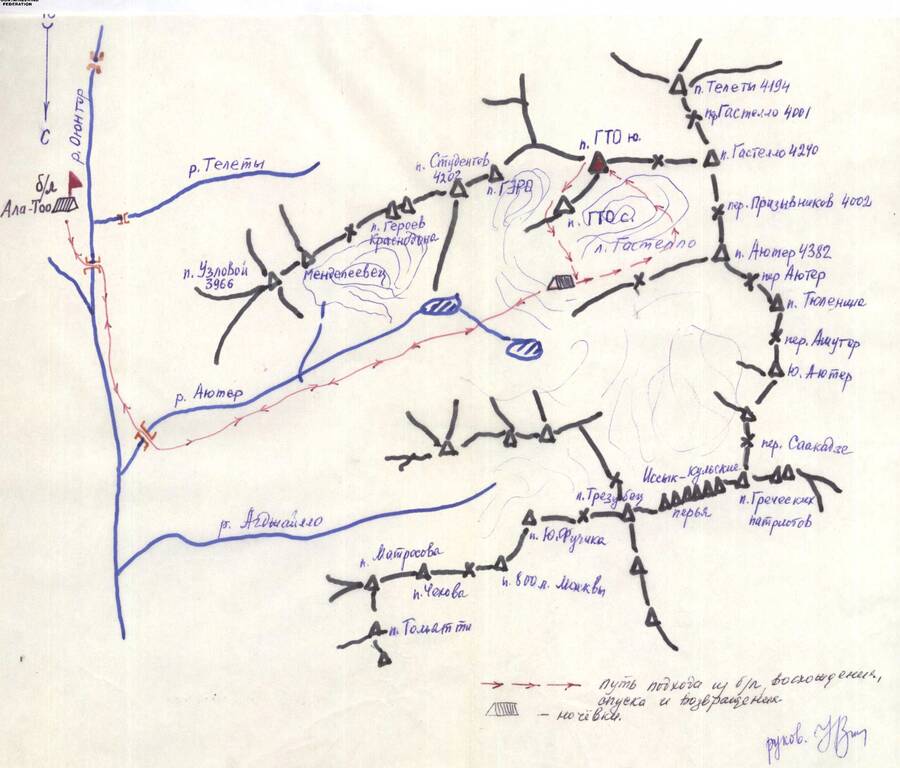 FEDERATION
С
р. Оюнтор
б/л
Ала-Тоо
р. Телеты
п. Телеты 4194
Гастелло 4001
п. ГТО ю.
п. Гастелло 4240
п. Студентов
4202
п. ГЭРО
п. ГТО с.
пер. Призывников 4002
п. Героев
Краснодона
л. Гастелло
п. Узловой
3966
Менделеевец
п. Аютер 4382
пер Аютер
п. Тюленина
пер. Ашутор
Ю. Аютер
р. Аютер
пер. Саакадзе
Иссык-кульские
перья
п. Греческих
патриотов
п. Трезубец
р. Агджайлло
п. Ю. Фучика
п. Матросова
п. Чехова
п. 800 л. Москвы
п. Тольятти
путь подхода из б/л, восхождения,
спуска и возвращения
- ночёвки.
руков.